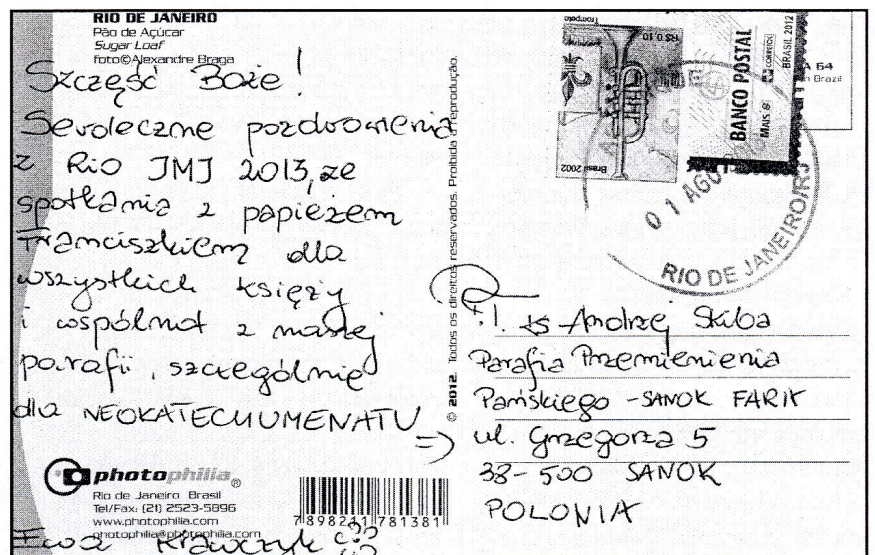 RIO DE JANEIRO
Pão de Açúcar
Sugar Loaf
foto©Alexandre Braga
Szczęść Boże!
Serdeczne pozdrowienia
z Rio JMJ 2013, ze
spotkania z papieżem
Franciszkiem dla
wszystkich księży
i wspólnot z naszej
parafii, szczególnie
dla NEOKATECHUMENATU
photophilia®
Rio de Janeiro Brasil
Tel/Fax: (21) 2523-5896
www.photophilia.com
photophilia@photophilia.com
7 898211 781381
Ewa Krawczyk
© 2012. Todos os direitos reservados. Proibida a reprodução.
Trompete
R$ 0,10
Brasil 2002
BANCO POSTAL
MAIS
CORREIOS
BRASIL 2012
A 64
Brazil
01 AGO
RIO DE JANEIRO/RJ
ks Andrzej Skiba
Parafia Przemienienia
Pańskiego - SANOK FARA
ul. Grzegorza 5
38-500 SANOK
POLONIA